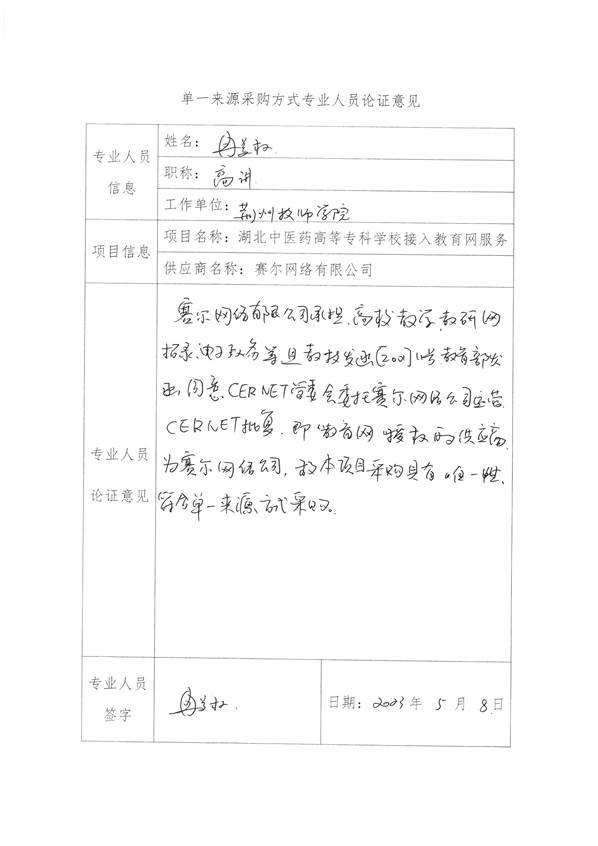 单一来源采购方式专业人员论证意见
专业人员
信息
姓名：
职称：高讲
工作单位：荆州技师学院
项目信息
项目名称：湖北中医药高等专科学校接入教育网服务
供应商名称：赛尔网络有限公司
专业人员
论证意见
赛尔网络有限公司承担、高校教学、教研网
招录、电子政务等且教技发函[200]1号教育部发
函同意CERNET管委会委托赛尔网络公司运营
CERNET批复。即教育网授权的供应商
为赛尔网络公司，故本项目采购具有唯一性、
符合单一来源方式采购。
专业人员
签字
日期：2023年 5 月 8 日